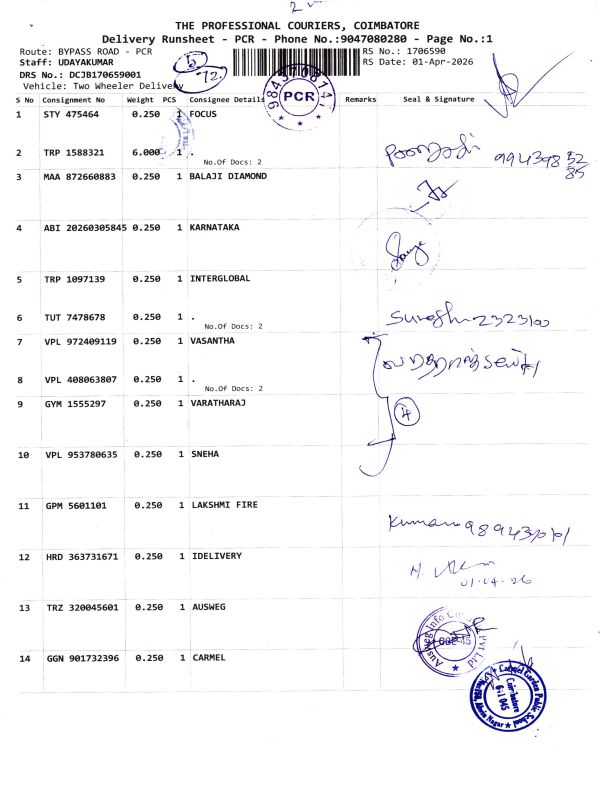 2
THE PROFESSIONAL COURIERS, COIMBATORE
Delivery Runsheet - PCR - Phone No.:9047080280 - Page No.:1
Route: BYPASS ROAD - PCR
RS No.: 1706590
Staff: UDAYAKUMAR
RS Date: 01-Apr-2026
DRS No.: DCJB170659001
Vehicle: Two Wheeler Delivery
12.
PCR
S No Consignment No Weight PCS Consignee Details Remarks Seal & Signature
1 STY 475464 0.250 1 FOCUS
2 TRP 1588321 6.000 1 .
No.Of Docs: 2
3 MAA 872660883 0.250 1 BALAJI DIAMOND
4 ABI 20260305845 0.250 1 KARNATAKA
5 TRP 1097139 0.250 1 INTERGLOBAL
6 TUT 7478678 0.250 1 .
No.Of Docs: 2
Suresh 2323100
7 VPL 972409119 0.250 1 VASANTHA
8 VPL 408063807 0.250 1 .
No.Of Docs: 2
9 GYM 1555297 0.250 1 VARATHARAJ
4
10 VPL 953780635 0.250 1 SNEHA
11 GPM 5601101 0.250 1 LAKSHMI FIRE
Kumar
12 HRD 363731671 0.250 1 IDELIVERY
01.04.26
13 TRZ 320045601 0.250 1 AUSWEG
Ausweg Info Pvt Ltd
14 GGN 901732396 0.250 1 CARMEL
Carmel Garden Public School
Coimbatore
641 045